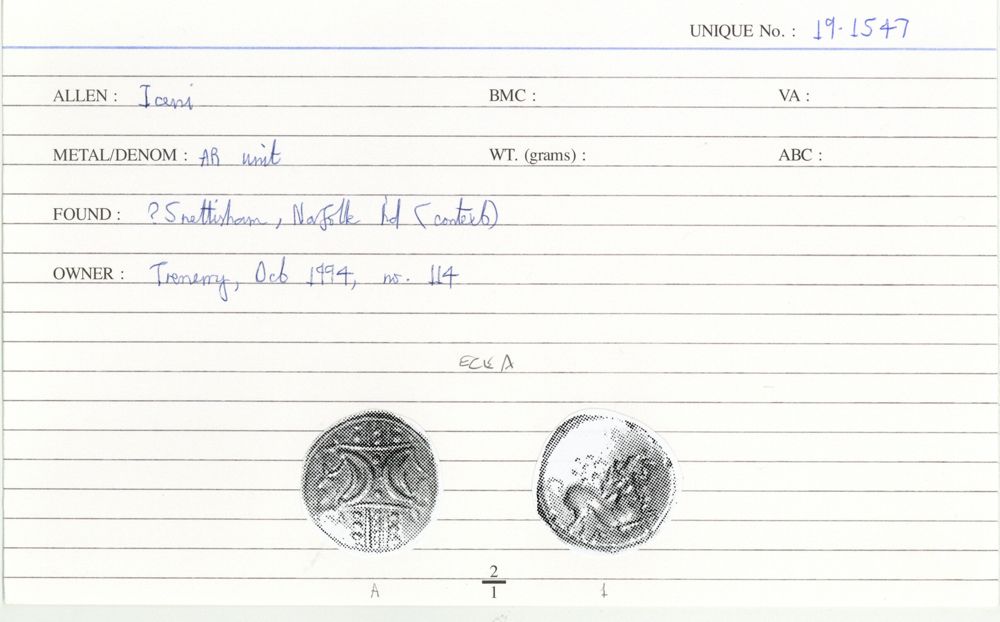 UNIQUE No. : 19-1547
ALLEN : Iceni BMC : VA :
METAL/DENOM : AR unit WT. (grams) : ABC :
FOUND : ? Snettisham, Norfolk hd (contexts)
OWNER : Trenerry, Oct 1994, no. 114
ECE A
A 2/1 1